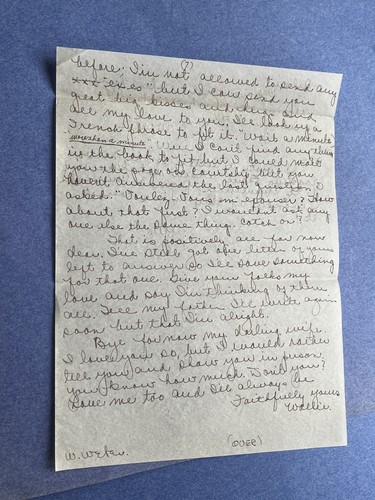 (7)
before. I'm not allowed to send any
xxx "ex.es" but I can send you
great big kisses and hugs and
all my love to you. I'll look up a
French phrase to fit it. "Wait a minute"
Well I can't find anything
in the book to fit but I could mail
you the page on courtship but you
haven't answered the last question I
asked. "Voulez-Vous m'epouser? How
about that just? I wouldn't ask any
one else the same thing. Catch on?
That is positively all for now
dear. I've still got one letter of yours
left to answer so I'll save something
for that one. Give your folks my
love and say I'm thinking of them
all. Tell my father I'll write again
soon but that I'm alright.
Bye for now my darling wife
I love you so, but I would rather
tell you and show you in person.
You know how much. Don't you?
Love me too and I'll always be
Faithfully yours
Walter.
(OVER)
W. Weber.